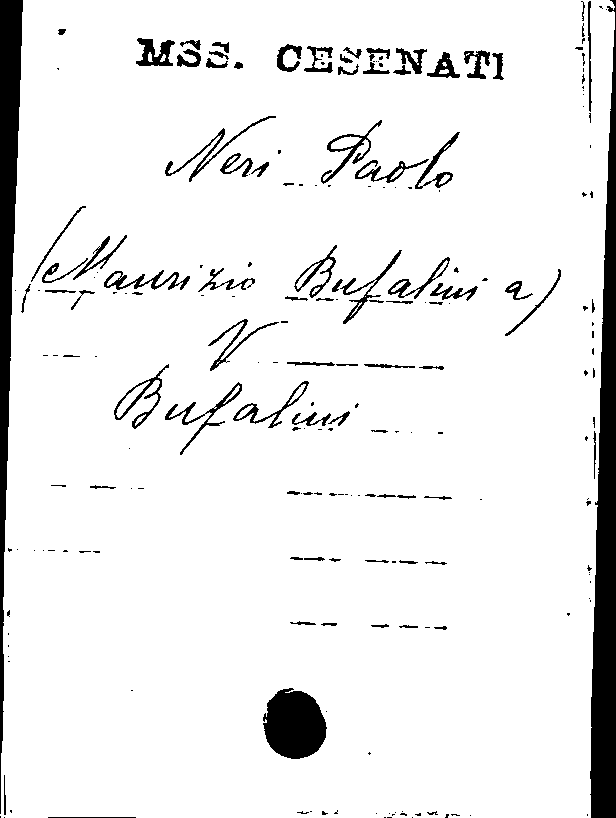 MSS. CESENATI
Neri Paolo
(Maurizio Bufalini a)
V
Bufalini